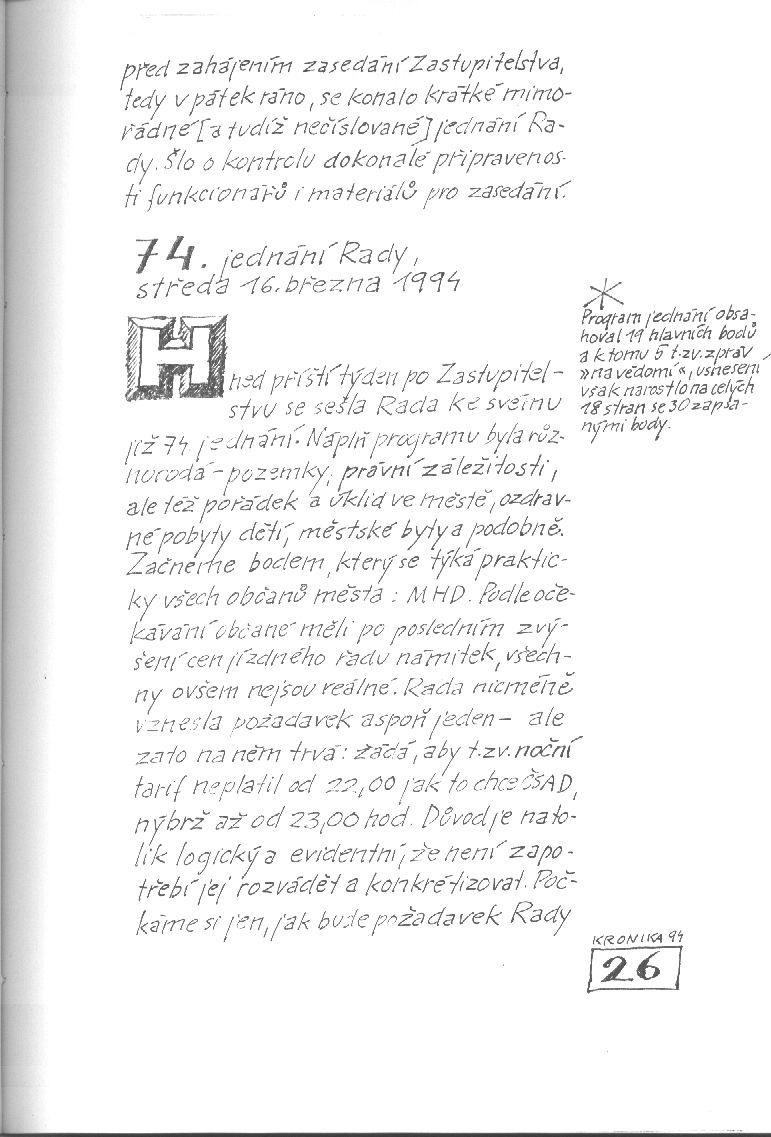 před zahájením zasedání Zastupitelstva,
tedy v pátek ráno, se konalo krátké mimo-
řádné [a tudíž nečíslované] jednání Ra-
dy. Šlo o kontrolu dokonalé připravenos-
ti funkcionářů i materiálů pro zasedání.
74. jednání Rady,
středa 16. března 1994
Hned příští týden po Zastupitel-
stvu se sešla Rada ke svému
již 74 jednání. Náplň programu byla růz-
norodá - pozemky, právní záležitosti,
ale též pořádek a úklid ve městě, ozdrav-
né pobyty dětí, městské byty a podobně.
Začneme bodem, který se týká praktic-
ky všech občanů města : MHD. Podle oče-
kávání občané měli po posledním zvý-
šení cen jízdného řadu námitek, všech-
ny ovšem nejsou reálné. Rada nicméně
vznesla požadavek aspoň jeden - ale
zato na něm trvá : žádá, aby t.zv. noční
tarif neplatil od 22,00 jak to chce ČSAD,
nýbrž až od 23,00 hod. Důvod je nato-
lik logický a evidentní, že není zapo-
třebí jej rozvádět a konkrétizovat. Poč-
káme si jen, jak bude požadavek Rady
*
Program jednání obsa-
hoval 19 hlavních bodů
a k tomu 5 t.zv. zpráv
»na vědomí«, usnesení
však narostlo na celých
18 stran se 30 zapsa-
nými body.
KRONIKA 94
26